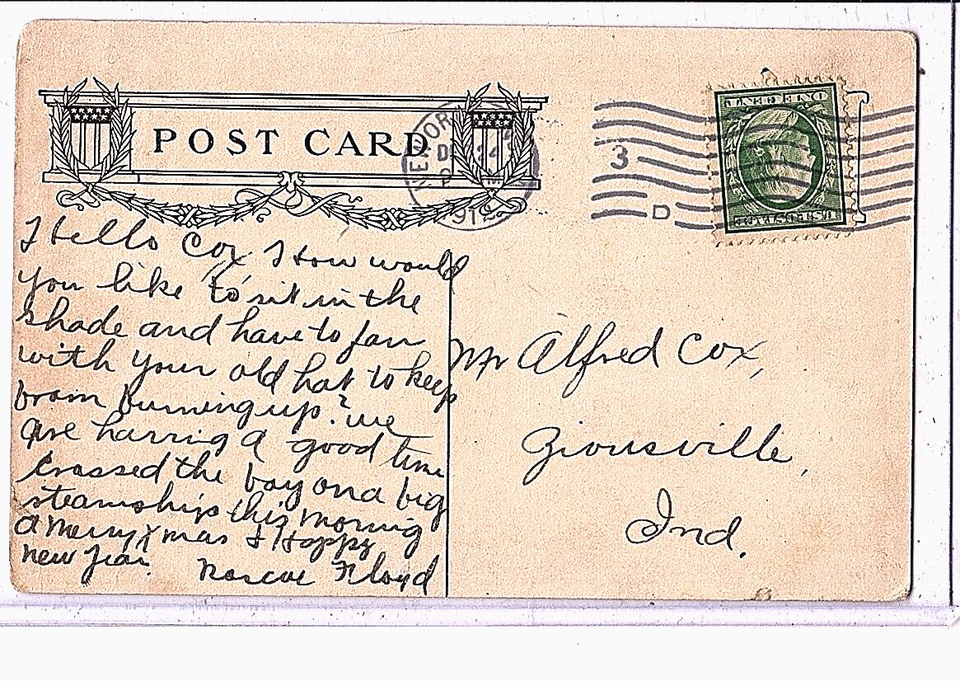 POST CARD
3
D
Hello Cox How would
you like to sit in the
shade and have to fan
with your old hat to keep
from burning up? we
are having a good time
crossed the bay on a big
steamship this morning
a merry xmas & Happy
new year.
Roscoe Floyd
Mr Alfred Cox,
Zionsville,
Ind.